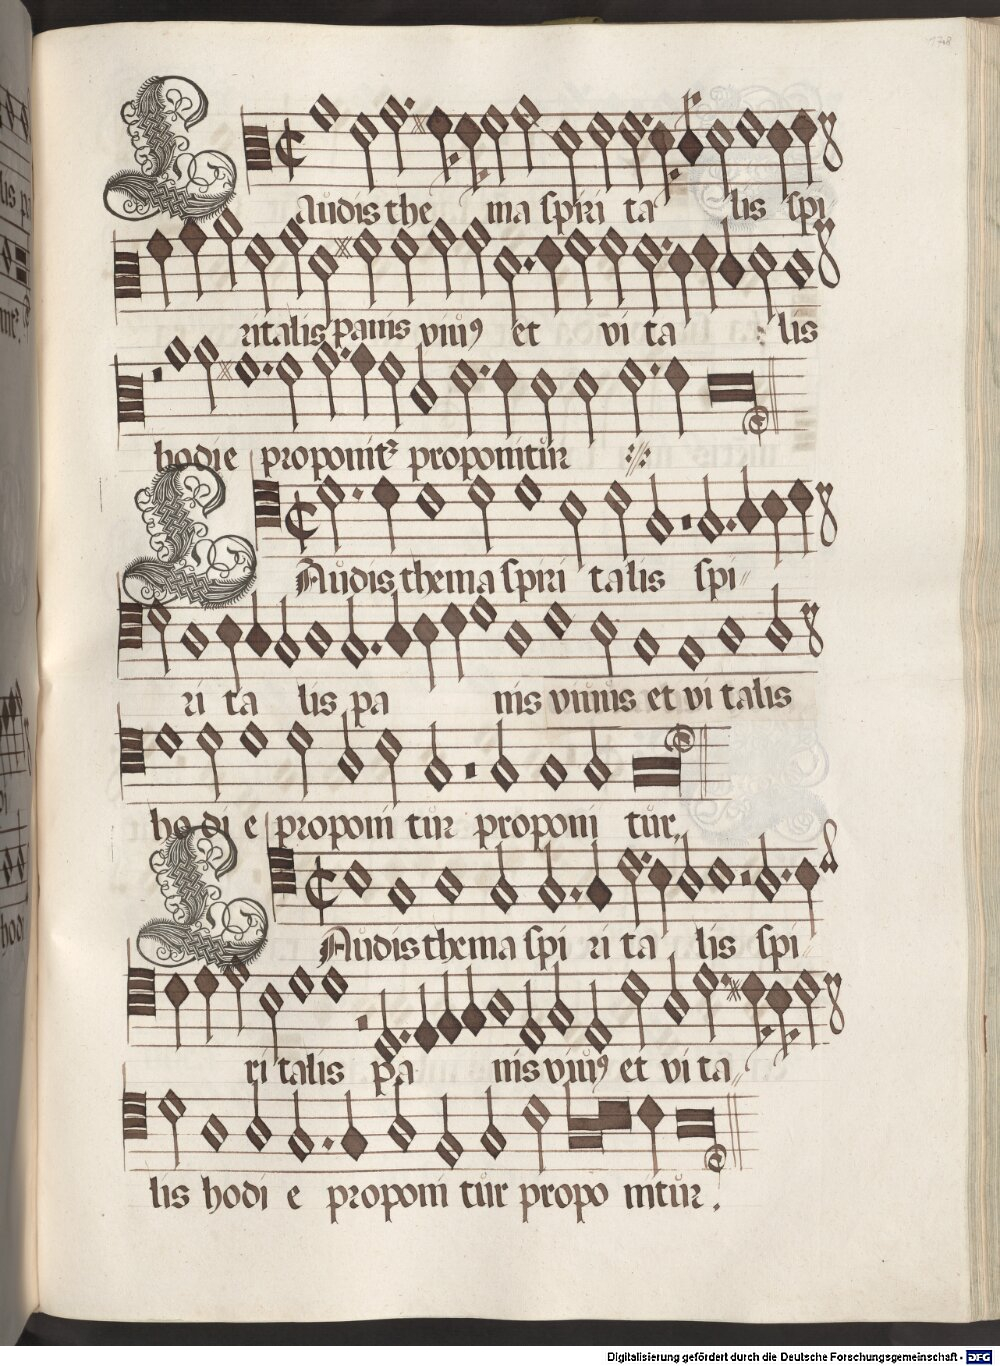 Laudis the ma spiri ta lis spi
ritalis panis viuꝰ et vi ta lis
hodie proponit᷑ proponitur
Laudis thema spiri talis spi
ri ta lis pa nis viuus et vi talis
ho di e proponi tur proponi tur
Laudis thema spi ri ta lis spi
ri talis pa nis viuꝰ et vi ta
lis hodi e proponi tur propo nitur.
Digitalisierung gefördert durch die Deutsche Forschungsgemeinschaft - DFG